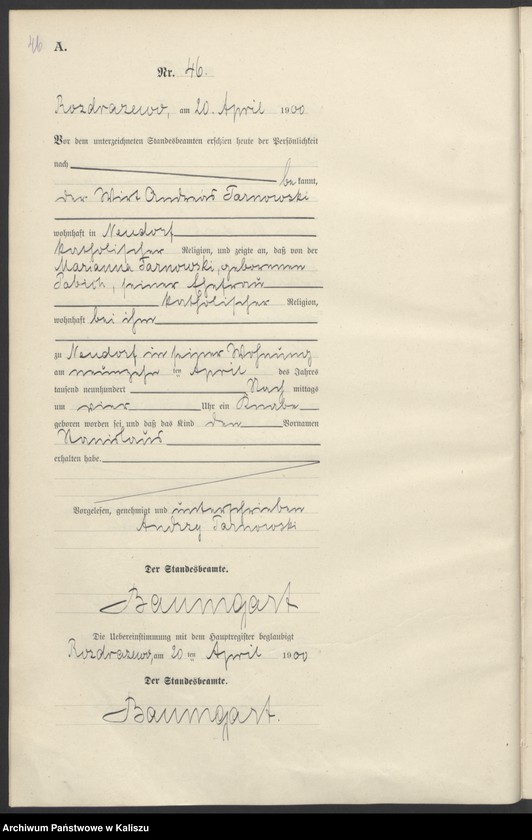 46 A.
Nr. 46.
Rozdrazewo, am 20. April 1900
Vor dem unterzeichneten Standesbeamten erschien heute der Persönlichkeit
nach
bekannt,
der Wirt Andreas Tarnowski
wohnhaft in Neudorf
katholischer Religion, und zeigte an, daß von der
Marianna Tarnowski, geborenen
Tabich, seiner Ehefrau
katholischer Religion,
wohnhaft bei ihm
zu Neudorf in seiner Wohnung
am neunzehnten April des Jahres
tausend neunhundert Nachmittags
um vier Uhr ein Knabe
geboren worden sei, und daß das Kind den Vornamen
Stanislaus
erhalten habe.
Vorgelesen, genehmigt und unterschrieben
Andrzy Tarnowski
Der Standesbeamte.
Baumgart
Die Uebereinstimmung mit dem Hauptregister beglaubigt
Rozdrazewo, am 20ten April 1900
Der Standesbeamte.
Baumgart.
Archiwum Państwowe w Kaliszu